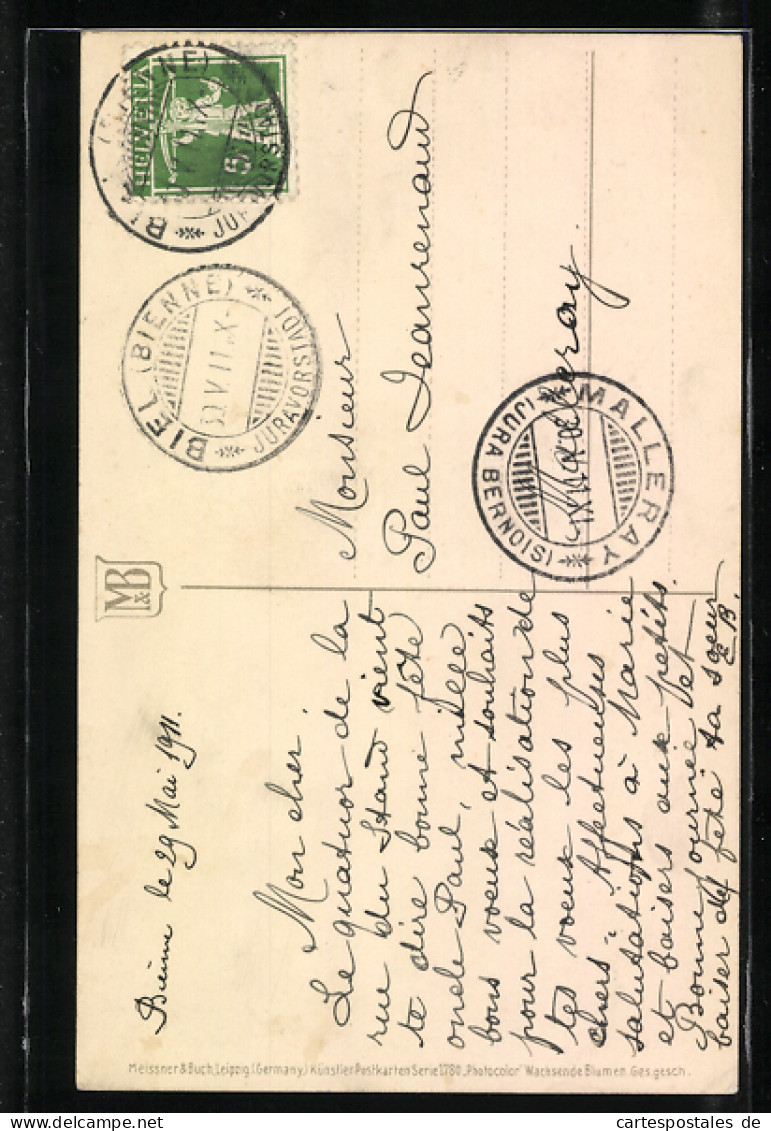 Bienne le 29 Mai 1911.
Mon cher.
Le quatuor de la
rue du Stand vient
te dire bonne fête
oncle Paul, mille
bons voeux et souhaits
pour la réalisation de
tes voeux les plus
chers. Affectueuses
salutations à Marie
et baisers aux petits.
Bonne journée et
baiser de fête ta soeur
B.
Monsieur
Paul Jeanrenaud
Malleray.
HELVETIA
5
BIEL (BIENNE)
JURAVORST(ADT)
BIEL (BIENNE)
JURAVORST(ADT)
MALLERAY
(JURA BERNOIS)
M&B
Meissner & Buch, Leipzig (Germany) Künstler-Postkarten Serie 1780 „Photocolor" Wachsende Blumen. Ges. gesch.
www.cartespostales.eu
www.cartespostales.de